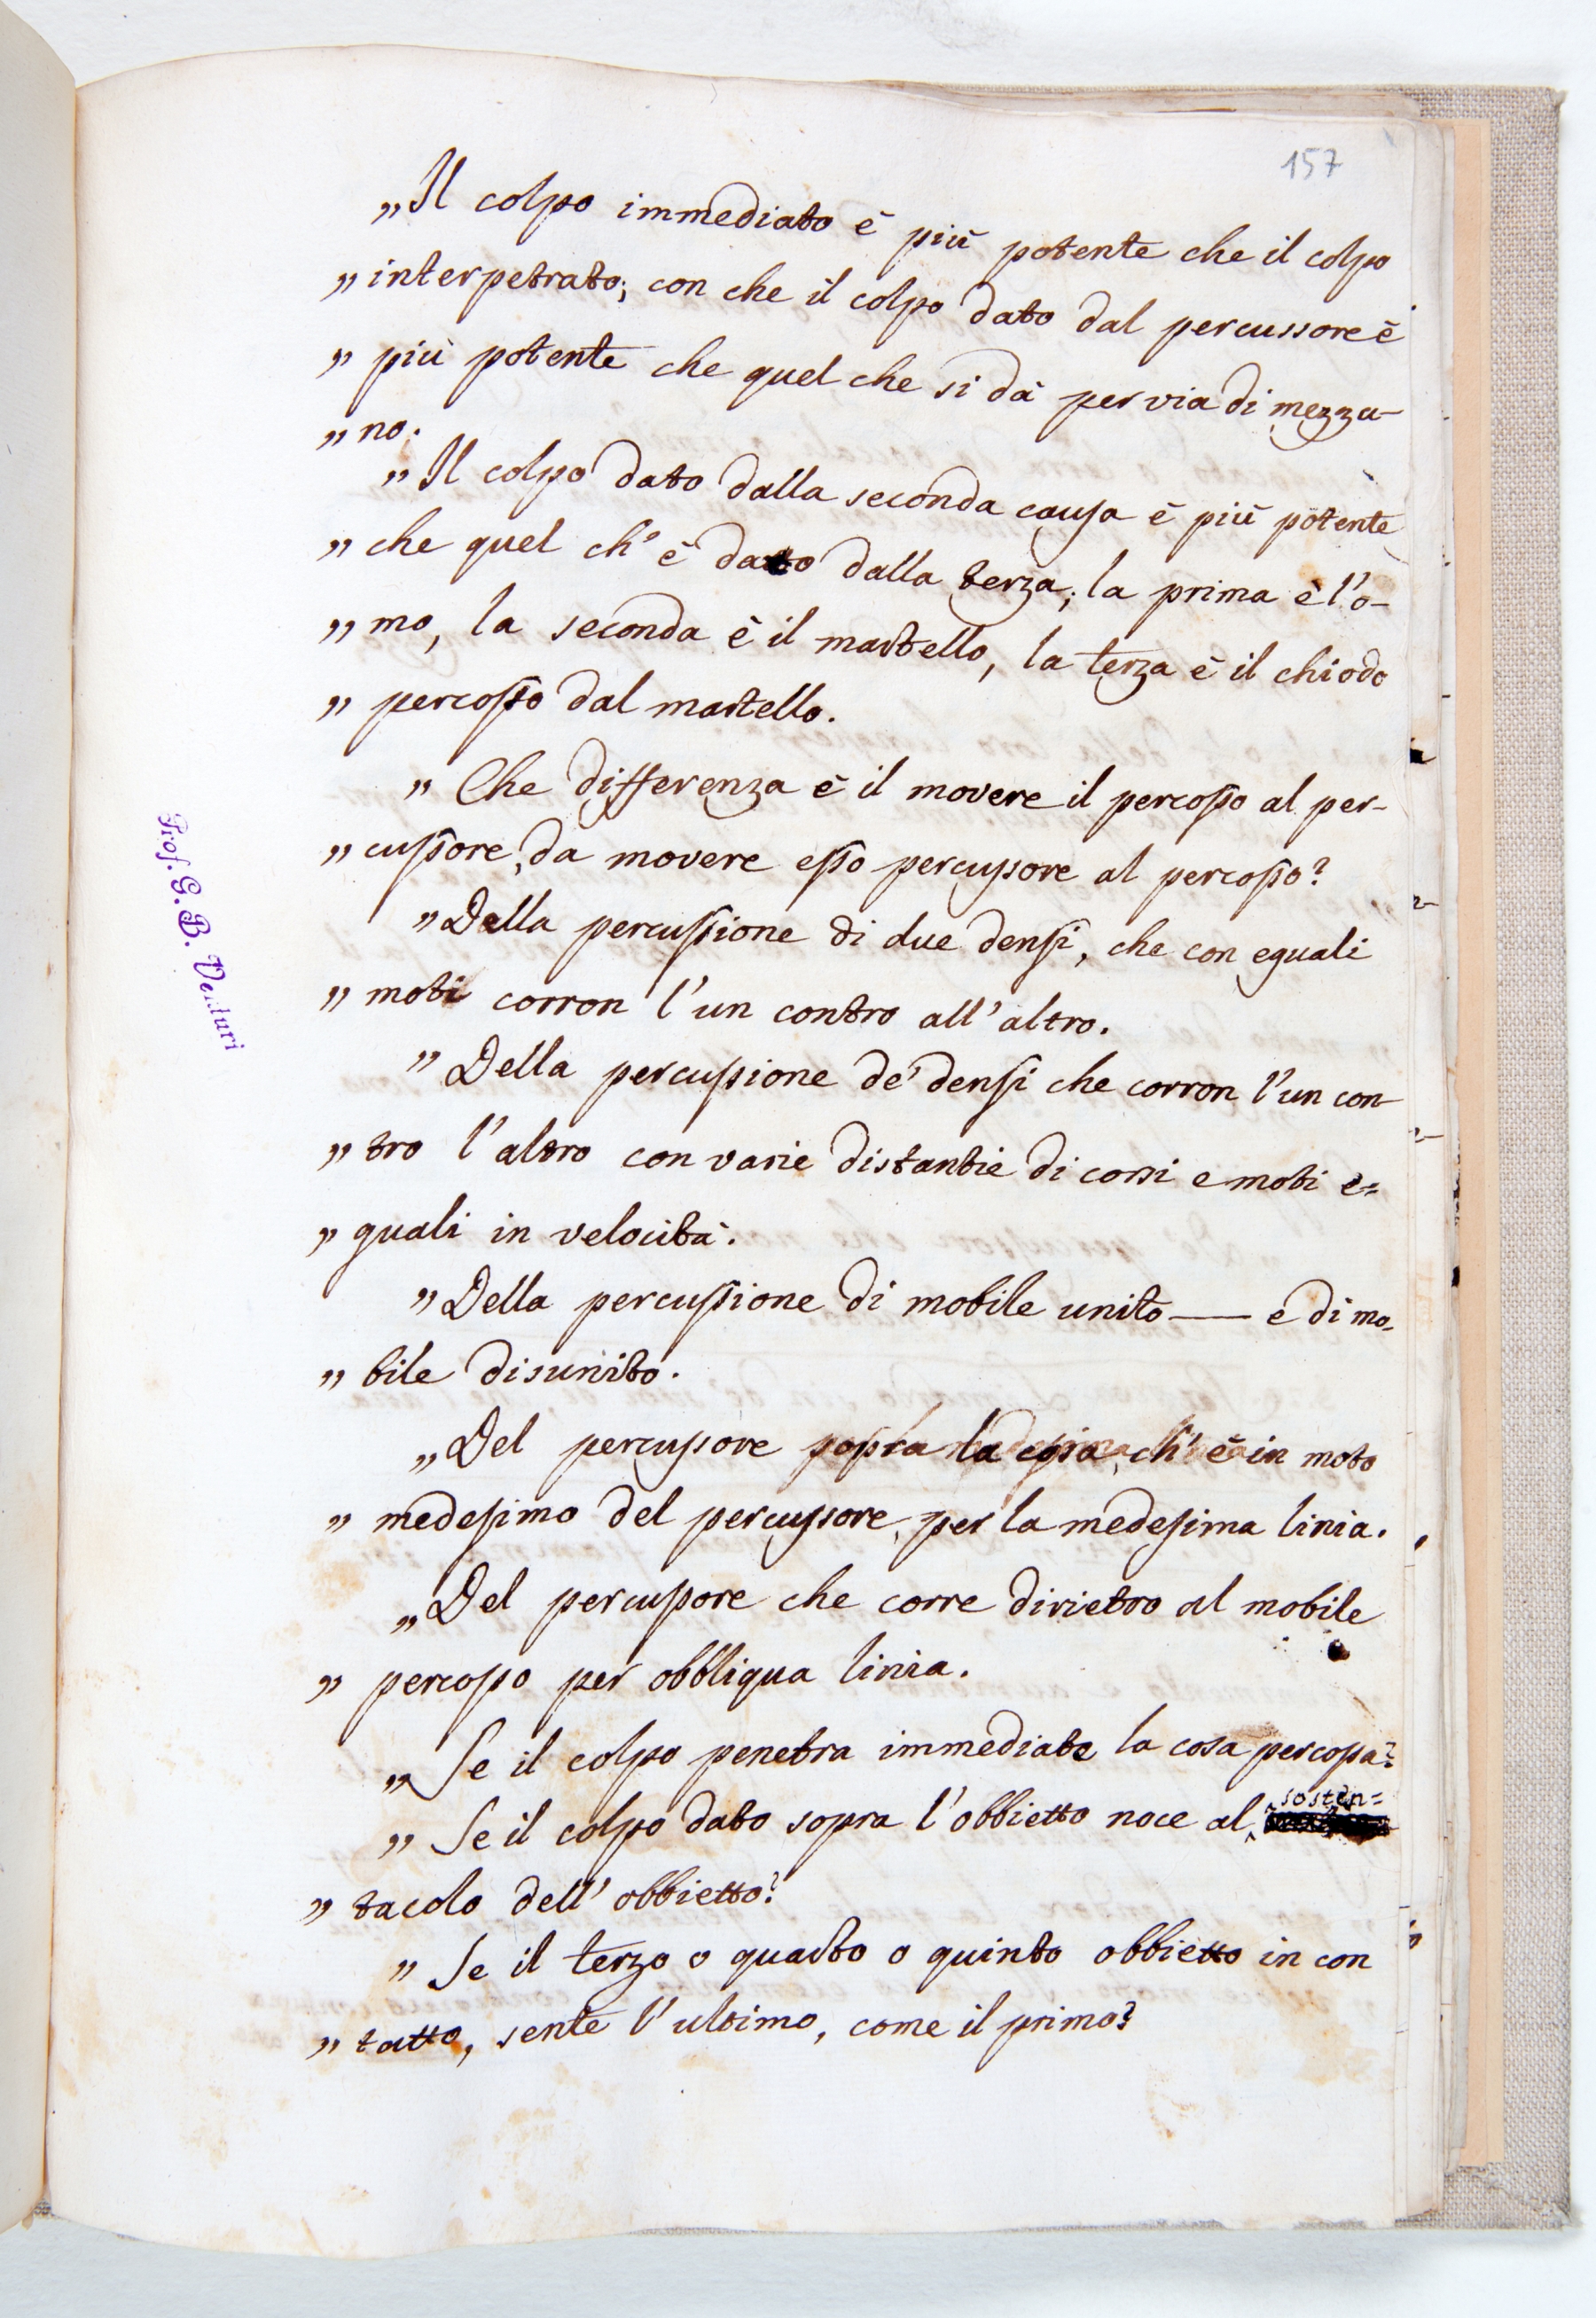 157
„ Il colpo immediato è più potente che il colpo
„ interpetrato; con che il colpo dato dal percussore è
„ più potente che quel che si dà per via di mezza-
„ no.
„ Il colpo dato dalla seconda causa è più potente
„ che quel ch' è dato dalla terza; la prima è l'o-
„ mo, la seconda è il martello, la terza è il chiodo
„ percosso dal martello.
„ Che differenza è il movere il percosso al per-
„ cussore, da movere esso percussore al percosso?
„ Della percussione di due densi, che con eguali
„ moti corron l'un contro all'altro.
„ Della percussione de' densi che corron l'un con-
„ tro l'altro con varie distantie di corsi e moti e=
„ guali in velocità.
„ Della percussione di mobile unito — e di mo-
„ bile disunito.
„ Del percussore sopra la cosa, ch' è in moto
„ medesimo del percussore, per la medesima linia.
„ Del percussore che corre dirietro al mobile
„ percosso per obbliqua linia.
„ Se il colpo penetra immediate la cosa percossa?
„ Se il colpo dato sopra l'obbietto noce al sosten=
„ tacolo dell' obbietto?
„ Se il terzo o quarto o quinto obbietto in con
„ tatto, sente l'ultimo, come il primo?
Prof. G. B. Venturi